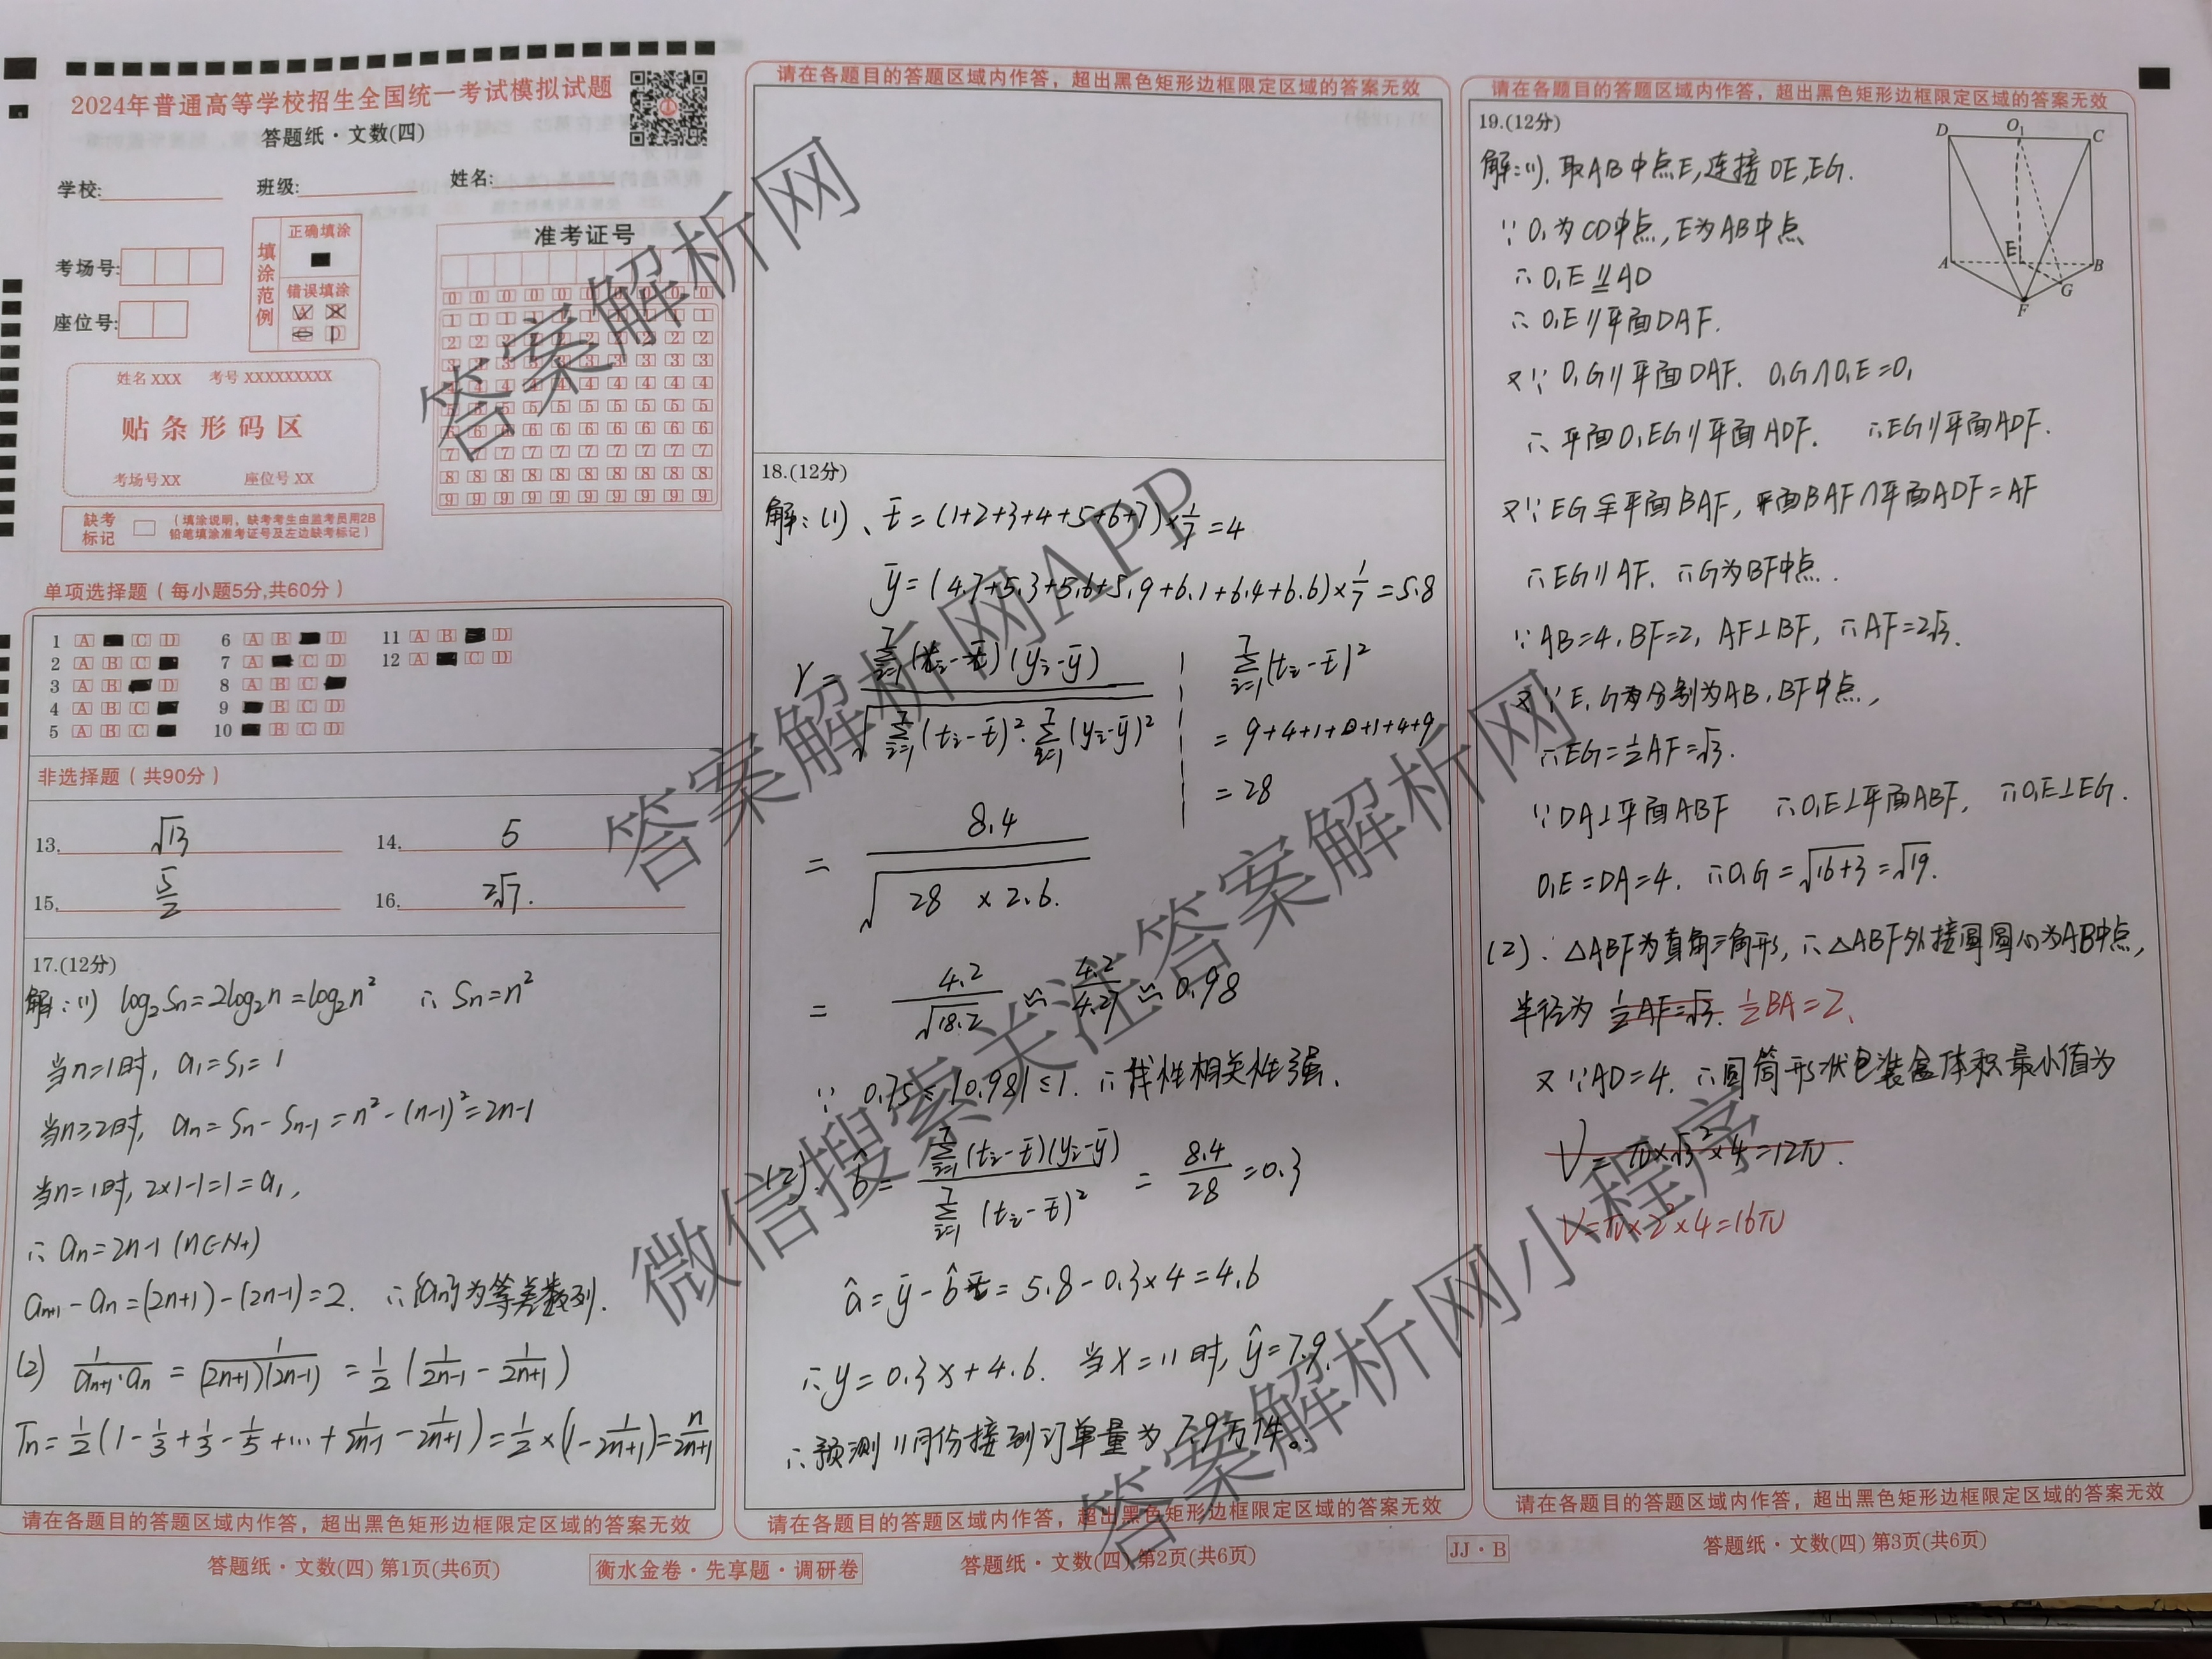 2024年普通高等学校招生全国统一考试模拟试题
答题纸·文数(四)
学校:
班级:
姓名:
考场号:
座位号:
填涂范例
正确填涂
错误填涂
准考证号
0 0 0 0 0 0 0 0 0 0
1 1 1 1 1 1 1 1 1 1
2 2 2 2 2 2 2 2 2 2
3 3 3 3 3 3 3 3 3 3
4 4 4 4 4 4 4 4 4 4
5 5 5 5 5 5 5 5 5 5
6 6 6 6 6 6 6 6 6 6
7 7 7 7 7 7 7 7 7 7
8 8 8 8 8 8 8 8 8 8
9 9 9 9 9 9 9 9 9 9
姓名 XXX 考号 XXXXXXXXX
贴条形码区
考场号XX 座位号 XX
缺考标记
(填涂说明,缺考考生由监考员用2B
铅笔填涂准考证号及左边缺考标记)
单项选择题(每小题5分,共60分)
1 A C D 6 A B D 11 A B D
2 A B C 7 A C D 12 A C D
3 A B D 8 A B C
4 A B C 9 B C D
5 A B C 10 B C D
非选择题(共90分)
13. √13 14. 5
15. 5/2 16. 2√7.
17.(12分)
解:(1) log₂Sn=2log₂n=log₂n² ∴ Sn=n²
当n=1时, a₁=S₁=1
当n≥2时, an=Sn-Sn-1=n²-(n-1)²=2n-1
当n=1时, 2×1-1=1=a₁,
∴ an=2n-1 (n∈N+)
an+1-an=(2n+1)-(2n-1)=2. ∴{an}为等差数列.
(2) 1/(an+1·an) = 1/((2n+1)(2n-1)) = 1/2 (1/(2n-1) - 1/(2n+1))
Tn=1/2(1-1/3+1/3-1/5+…+1/(2n-1)-1/(2n+1))=1/2×(1-1/(2n+1))=n/(2n+1)
请在各题目的答题区域内作答,超出黑色矩形边框限定区域的答案无效
答题纸·文数(四) 第1页(共6页)
请在各题目的答题区域内作答,超出黑色矩形边框限定区域的答案无效
18.(12分)
解:(1)、t̄=(1+2+3+4+5+6+7)×1/7=4
ȳ=(4.7+5.3+5.6+5.9+6.1+6.4+6.6)×1/7=5.8
r= Σ(i=1→7)(ti-t̄)(yi-ȳ) / √(Σ(i=1→7)(ti-t̄)²·Σ(i=1→7)(yi-ȳ)²)
Σ(i=1→7)(ti-t̄)²
=9+4+1+0+1+4+9
=28
= 8.4/√(28×2.6.)
= 4.2/√18.2 ≈ 4.2/4.27 ≈ 0.98
∵ 0.75≤|0.98|≤1. ∴线性相关性强.
(2). b̂= Σ(i=1→7)(ti-t̄)(yi-ȳ) / Σ(i=1→7)(ti-t̄)² = 8.4/28=0.3
â=ȳ-b̂t̄=5.8-0.3×4=4.6
∴y=0.3x+4.6. 当x=11时, ŷ=7.9.
∴预测11月份接到订单量为7.9万件。
请在各题目的答题区域内作答,超出黑色矩形边框限定区域的答案无效
衡水金卷·先享题·调研卷
答题纸·文数(四) 第2页(共6页)
JJ·B
请在各题目的答题区域内作答,超出黑色矩形边框限定区域的答案无效
19.(12分)
D O₁ C
A E B
G
F
解:(1).取AB中点E,连接OE,EG.
∵O₁为CD中点,E为AB中点
∴O₁E∥=AD
∴O₁E∥平面DAF.
又∵O₁G∥平面DAF. O₁G∩O₁E=O₁
∴平面O₁EG∥平面ADF. ∴EG∥平面ADF.
又∵EG⊊平面BAF, 平面BAF∩平面ADF=AF
∴EG∥AF. ∴G为BF中点.
∵AB=4, BF=2, AF⊥BF, ∴AF=2√3.
又∵E,G分别为AB,BF中点,
∴EG=1/2AF=√3.
∵DA⊥平面ABF ∴O₁E⊥平面ABF, ∴O₁E⊥EG.
O₁E=DA=4. ∴O₁G=√(16+3)=√19.
(2).△ABF为直角三角形,∴△ABF外接圆圆心为AB中点,
半径为 1/2AF=√3. 1/2BA=2.
又∵AD=4. ∴圆筒形状包装盒体积最小值为
V=π×√3²×4=12π.
V=π×2²×4=16π
请在各题目的答题区域内作答,超出黑色矩形边框限定区域的答案无效
答题纸·文数(四) 第3页(共6页)
答案解析网
答案解析网APP
微信搜索关注答案解析网
答案解析网小程序